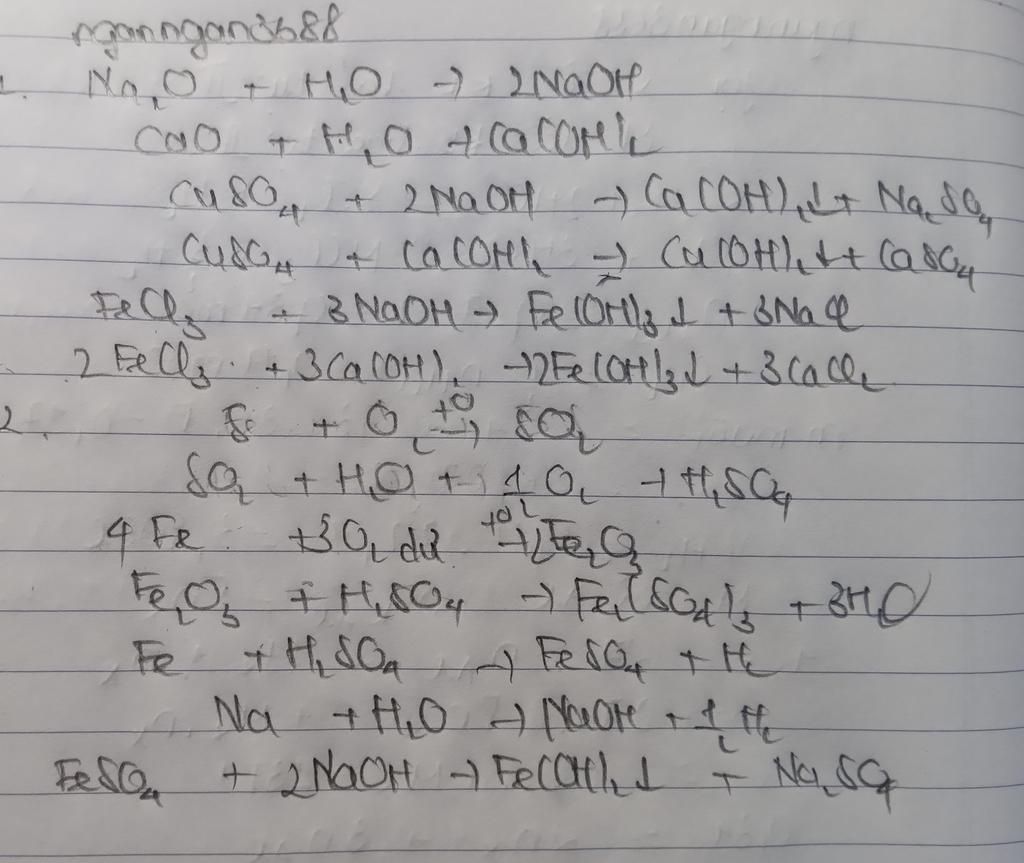 ngannngan3688
1. Na₂O + H₂O → 2NaOH
CaO + H₂O → Ca(OH)₂
CuSO₄ + 2NaOH → Ca(OH)₂↓ + Na₂SO₄
CuSO₄ + Ca(OH)₂ → Cu(OH)₂↓ + CaSO₄
FeCl₃ + 3NaOH → Fe(OH)₃↓ + 3NaCl
2FeCl₃ + 3Ca(OH)₂ → 2Fe(OH)₃↓ + 3CaCl₂
2. S + O₂ +O→ SO₂
SO₂ + H₂O + 1/2 O₂ → H₂SO₄
4Fe + 3O₂ dư +O→ 2Fe₂O₃
Fe₂O₃ + H₂SO₄ → Fe₂(SO₄)₃ + 3H₂O
Fe + H₂SO₄ → FeSO₄ + H₂
Na + H₂O → NaOH + 1/2 H₂
FeSO₄ + 2NaOH → Fe(OH)₂↓ + Na₂SO₄